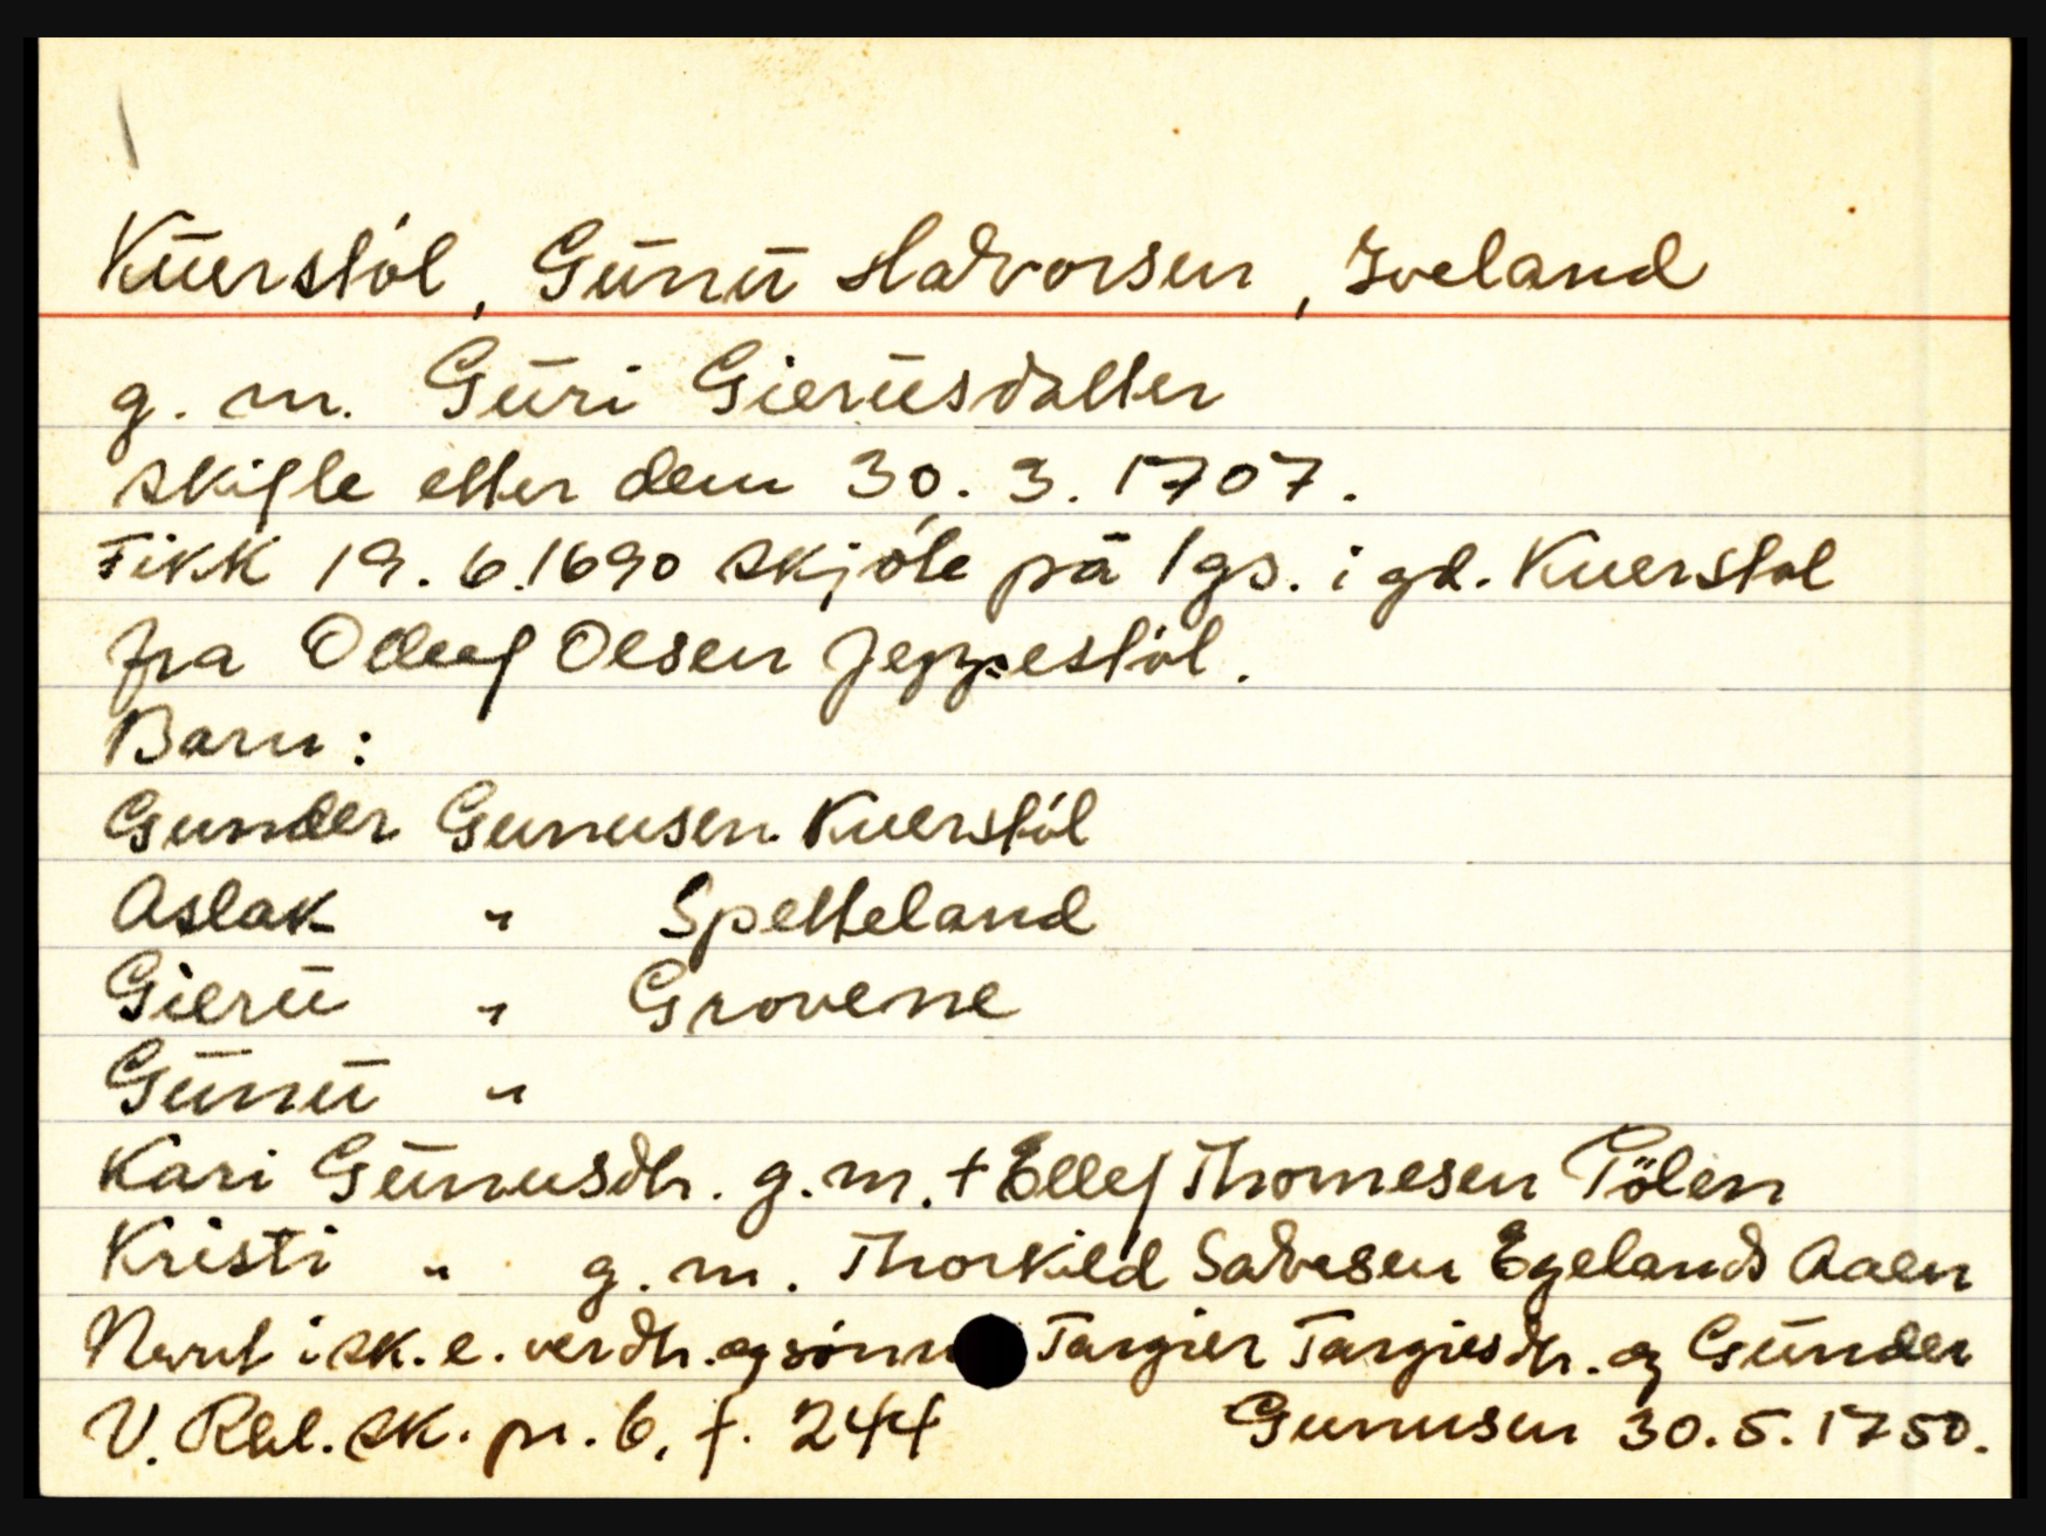 Kuerstöl, Gunu Halvorsen, Iveland
g. m. Guri Gierusdatter
skifte etter dem 30. 3. 1707.
Fikk 19. 6. 1690 skjöte på 1 gs. i gd. Kuerstöl
fra Ollef Olsen Jeppestöl.
Barn:
Gunder Gunusen Kuerstöl
Aslak " Spetteland
Gieru " Grovene
Gunu "
Kari Gunusdtr. g. m. + Ellef Thomesen Tölen
Kristi " g. m. Thorkild Salvesen Egelands Aaen
Nevnt i sk. e. verdtr. og sönn Targier Targiesdtr. og Gunder
V. Rbl. sk. pr. 6, f. 244 Gunusen 30. 5. 1750.